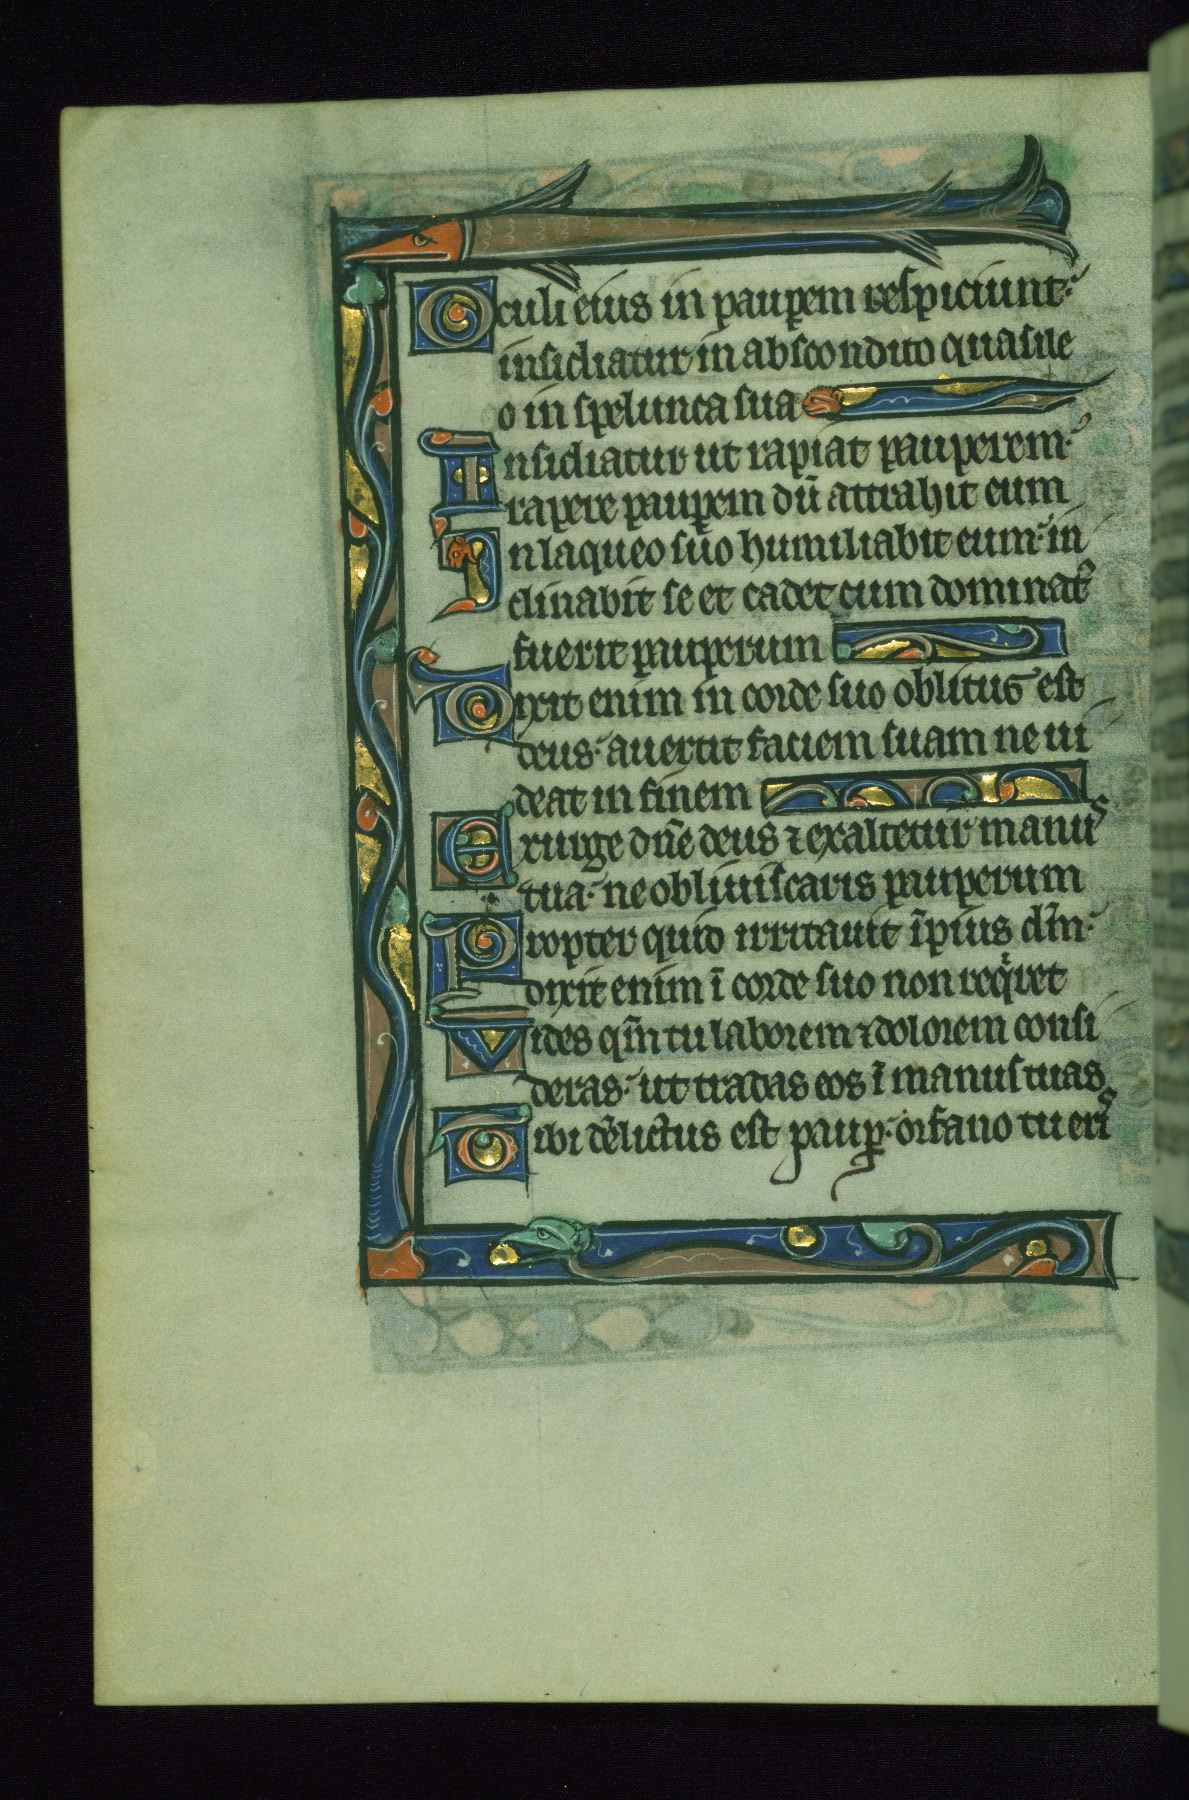 Oculi eius in paup̲em respiciunt:
insidiatur in abscondito quasi le
o in spelunca sua
Insidiatur ut rapiat pauperem·
rapere paup̲em dū attrahit eum
In laqueo suo humiliabit eum· in
clinabit se et cadet cum dominat᷑
fuerit paup̲erum
Dixit enim in corde suo oblitus est
deus· auertit faciem suam ne ui
deat in finem
Exurge dn̄e deus ⁊ exaltetur manus
tua· ne obliuiscaris pauperum
Propter quid irritauit īpius dm̄·
dixit enim ī corde suo non reqͥret
Vides qm̄ tu laborem ⁊ dolorem consi
deras· ut tradas eos ī manus tuas
Tibi dēlictus est paup̲· orfano tu eris